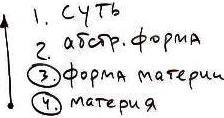 1. суть
2. абстр. форма
3. форма материи
4. материя